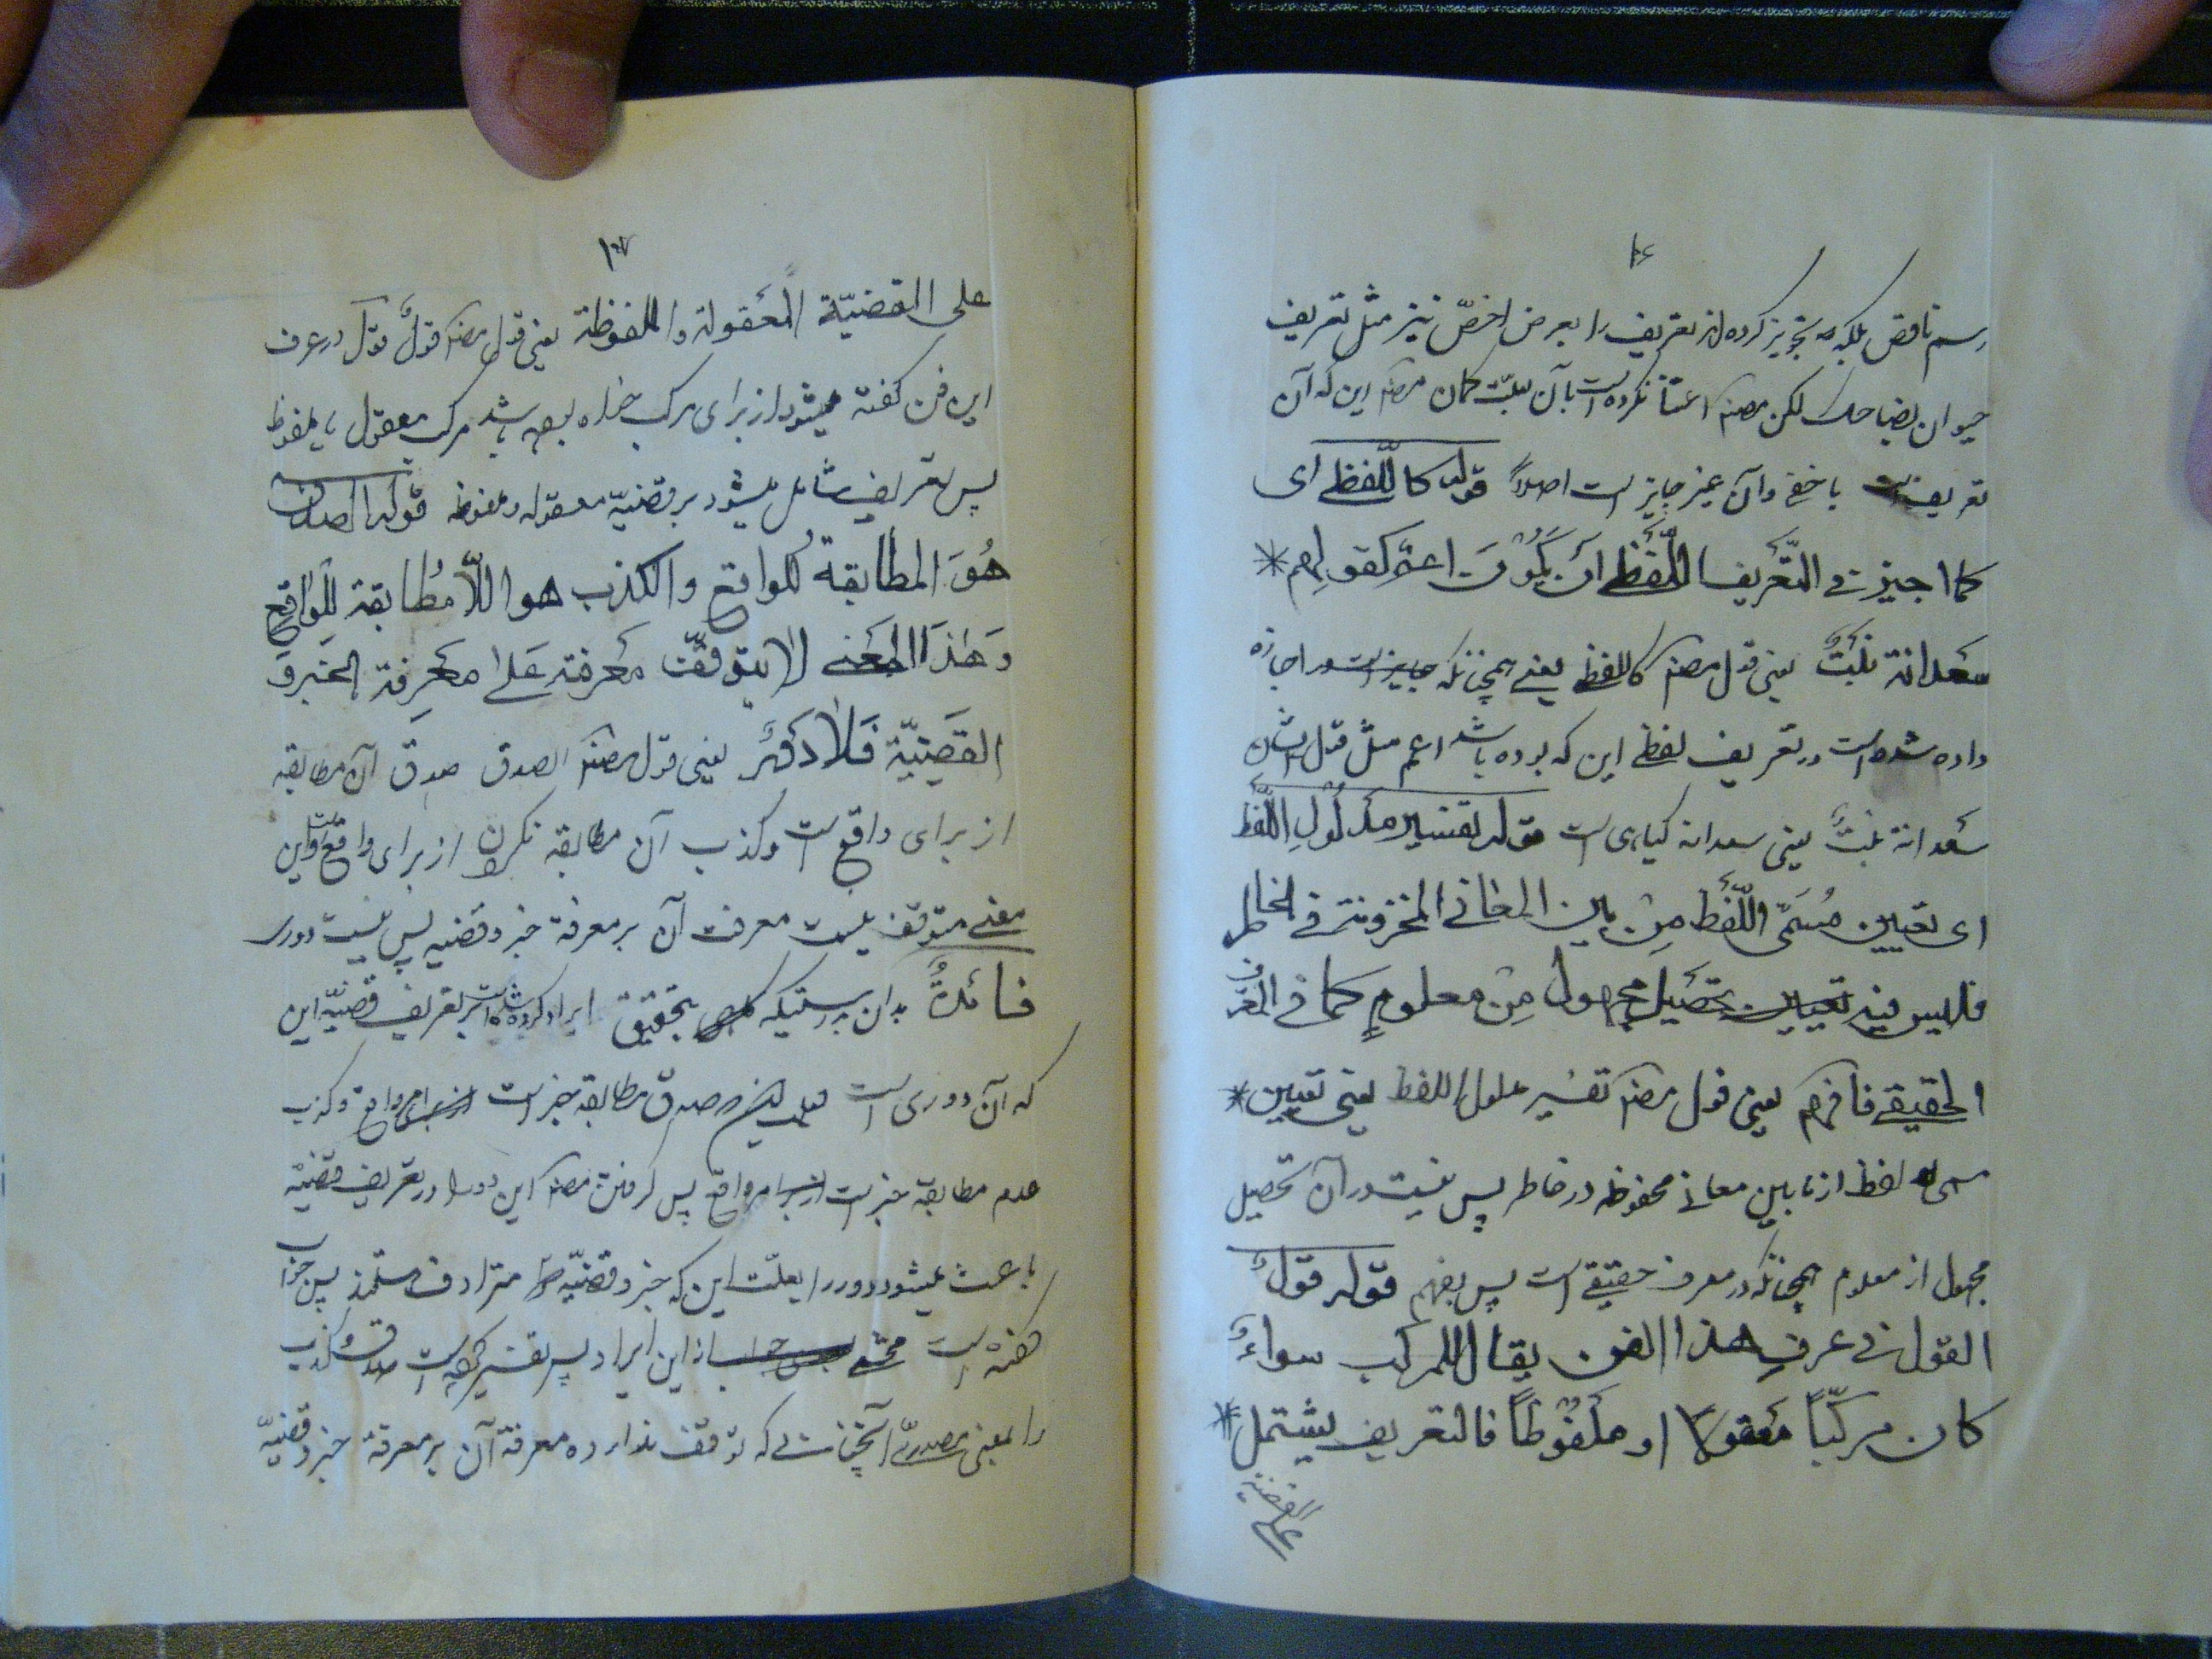 رسم ناقص بلکه تجویز کرده‌اند تعریف را بعرض اخصّ نیز مثل تعریف
حیوان بضاحک لکن مصنف اعتنا نکرده است بآن بعلّت گمان مصنف این که آن
تعریف است باخفی وآن غیر جایز است اصلاً قوله کاللّفظی ای
کما اجیز فی التّعریف اللّفظی ان یکون اعمّ کقولهم *
سعدانة نبتٌ یعنی قول مصنف کاللفظی یعنی همچنانکه اجازه
داده شده است در تعریف لفظی این که بوده باشد اعم مثل قول ایشان
سعدانة نبتٌ یعنی سعدانه گیاهی است قوله تفسیر مدلول اللّفظ
ای تعیین مُسمّی اللّفظ من بین المعانی المخزونة فی الخاطر
فلیس فیه تحصیل مجهول من معلومٍ کما فی المعرّف
الحقیقی فافهم یعنی قول مصنف تفسیر مدلول اللفظ یعنی تعیین *
مسمی لفظ از مابین معانی محفوظه در خاطر پس نیست در آن تحصیل
مجهول از معلوم همچنانکه در معرف حقیقی است پس بفهم قوله قولٌ
القول فی عرف هذا الفن یقال للمرکب سواءٌ
کان مرکّباً معقولا او ملفوظاً فالتعریف یشتمل *
علی القضیة
۱۷
علی القضیّة المعقولة والملفوظة یعنی قول مصنف قولٌ قول در عرف
این فن گفته میشود از برای مرکب خواه بوده باشد مرکب معقول یا ملفوظ
پس تعریف شامل میشود بر قضیّه معقوله و ملفوظه قوله الصدق
هُوَ المطابقة للواقع والکذب هو اللّامُطابقة للواقع
وَهٰذَا المعنی لا یتوقّف معرفته عَلیٰ معرفة الخبر وَ
القضیّة فَلا دَوْرَ یعنی قول مصنف الصدق صدق آن مطابقه
از برای واقع است وکذب آن مطابقه نکردن از برای واقع است واین
معنی متوقف نیست معرفت آن بر معرفة خبر و قضیه پس نیست دوری
فائدةٌ بدان بدرستیکه بتحقیق ایراد کرده شده است بر تعریف قضیّه این
که آن دوری است صدق مطابقه خبر است از برای واقع وکذب
عدم مطابقة خبر است از برای واقع پس گرفتن مصنف این دو را در تعریف قضیّة
باعث میشود دور را بعلّت این که خبر و قضیّه مترادف هستند پس جواب
گفته است محشی از این ایراد پس تفسیر کرده است صدق وکذب
را بمعنی مصدری آنچنانی که توقف ندارد معرفة آن بر معرفة خبر و قضیّه